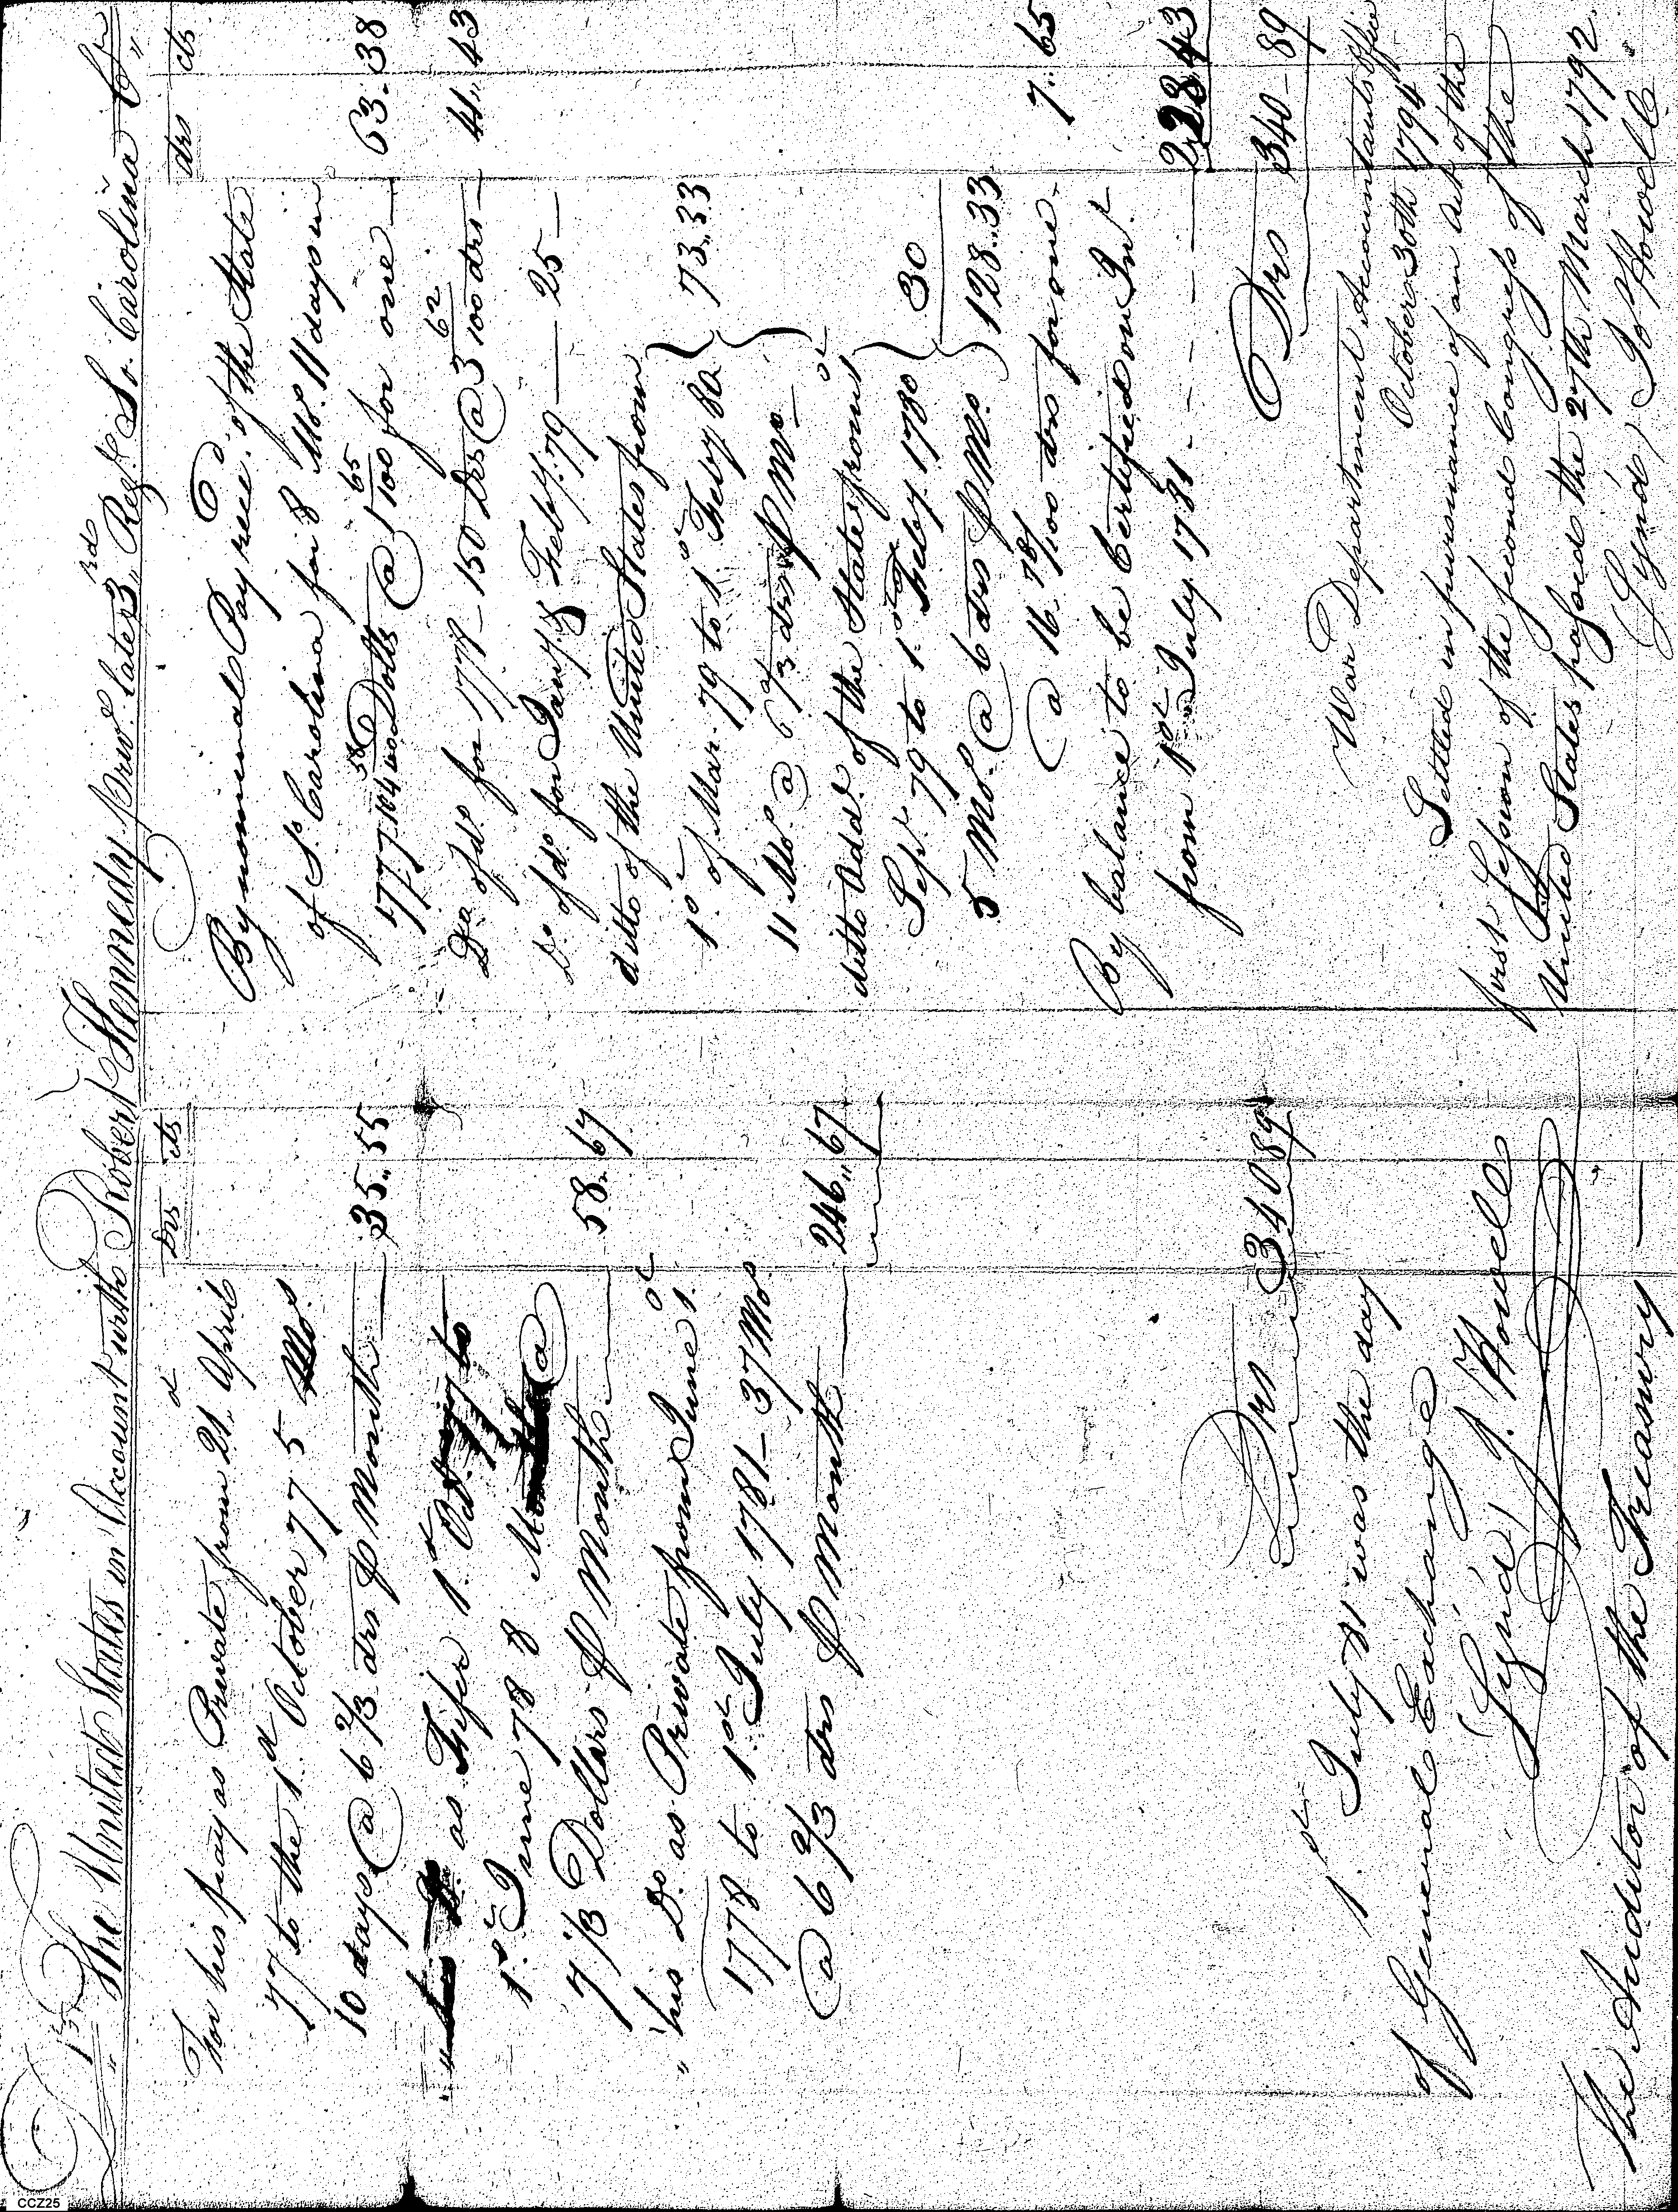 Dr The United States in Account with Robert Kennedy priv. late 3rd Regt. So. Carolina Cr
Drs cts
For his pay as Private from 21st April
77 to the 1st October 77 5 Mos.
10 days @ 6 2/3 drs P Month — 35..55
" his Do. as Fifer 1st Oct. 77 to
1st June 78 8 Months @
7 1/3 Dollars P Month — 58..67
" his Do. as Private from June 1st
1778 to 1st July 1781 — 37 Mos
@ 6 2/3 drs P Month — 246..67
Drs 340 89
1st July 81 was the day
of General Exchange
(Sign'd) J. Howell
The Auditor of the Treasury —
drs cts
By nominal Pay recd. of the State
of So. Carolina for 8 Mos. 11 days in
1777 104 58/100 Dolls @ 1 65/100 for one — 63..38
Do. of do. for 1778 — 150 Drs @ 3 62/100 drs — 41..43
Do. of do. for Jany & Feby. 79 — 25 —
ditto of the United States from
1st of Mar. 79 to 1st Feby 80 } 73..33
11 Mos. @ 6 2/3 drs P Mo —
ditto Addl. of the States from 1st
Sept. 79 to 1st Feby. 1780 } 30
5 Mos. @ 6 drs P Mo. } 128..33
@ 16 78/100 drs for one — 7..65
By balance to be Certified on Int.
from 1st July 1781 — 228 43
Drs 340 — 89
War Department Accountants Office
October 30th 1794
Settled in pursuance of an Act of the
first Session of the second Congress of the
United States passed the 27th March 1792
(Sign'd) J. Howell
CCZ25